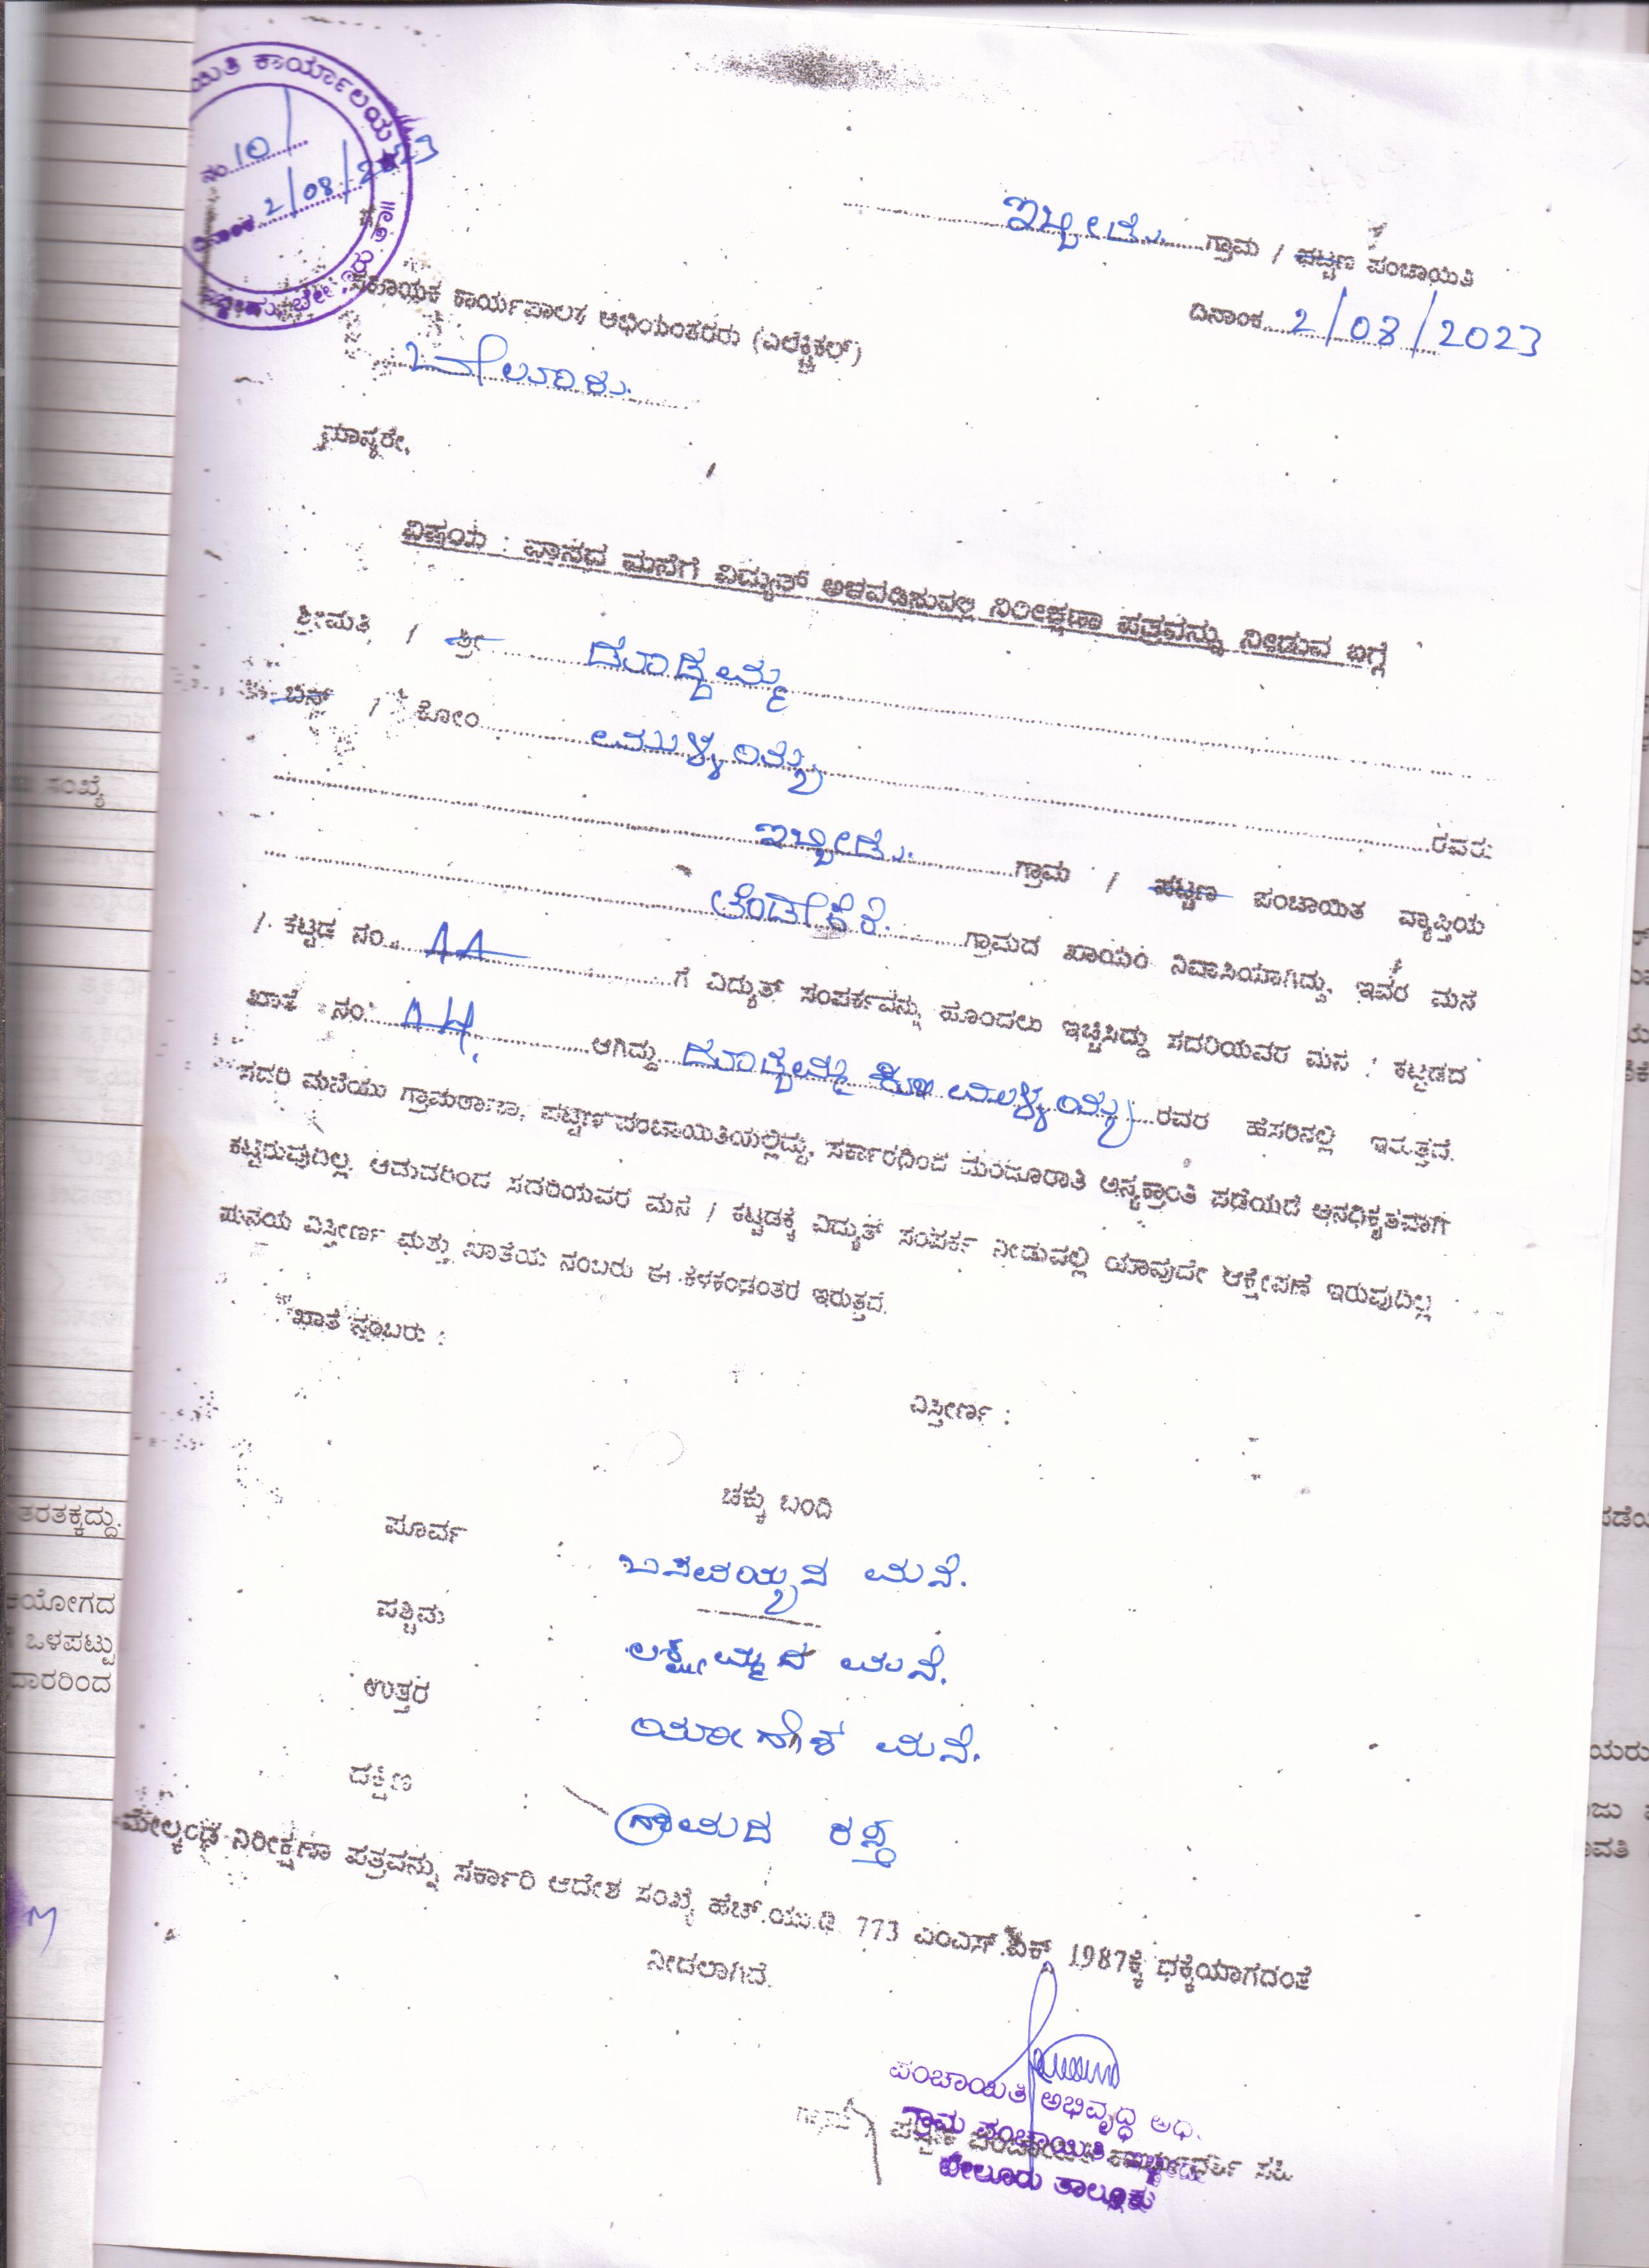 ಕಾರ್ಯಾಲಯ
ನಂ 10
ದಿನಾಂಕ 2/08/2023
ಇಬ್ಬೀಡು ಗ್ರಾಮ / ಪಟ್ಟಣ ಪಂಚಾಯಿತಿ
ದಿನಾಂಕ 2/08/2023
ಸಹಾಯಕ ಕಾರ್ಯಪಾಲಕ ಅಭಿಯಂತರರು (ಎಲೆಕ್ಟ್ರಿಕಲ್)
ಬೇಲೂರು.
ಮಾನ್ಯರೇ,
ವಿಷಯ : ವಾಸದ ಮನೆಗೆ ವಿದ್ಯುತ್ ಅಳವಡಿಸುವಲ್ಲಿ ನಿರೀಕ್ಷಣಾ ಪತ್ರವನ್ನು ನೀಡುವ ಬಗ್ಗೆ
ಶ್ರೀಮತಿ / ಶ್ರೀ ದ್ಯಾವಮ್ಮ
ಬಿನ್ / ಕೋಂ ಮಲ್ಲಯ್ಯ
ರವರು
ಇಬ್ಬೀಡು. ಗ್ರಾಮ / ಪಟ್ಟಣ ಪಂಚಾಯಿತ ವ್ಯಾಪ್ತಿಯ
ಗ್ರಾಮದ ಖಾಯಂ ನಿವಾಸಿಯಾಗಿದ್ದು, ಇವರ ಮನೆ
/ ಕಟ್ಟಡ ನಂ. 11 ಗೆ ವಿದ್ಯುತ್ ಸಂಪರ್ಕವನ್ನು ಹೊಂದಲು ಇಚ್ಚಿಸಿದ್ದು ಸದರಿಯವರ ಮನೆ / ಕಟ್ಟಡದ
ಖಾತೆ ನಂ 14. ಆಗಿದ್ದು ರವರ ಹೆಸರಿನಲ್ಲಿ ಇರುತ್ತವೆ.
ಸದರಿ ಮನೆಯು ಗ್ರಾಮಠಾಣಾ, ಪಟ್ಟಣ ಪಂಚಾಯಿತಿಯಲ್ಲಿದ್ದು, ಸರ್ಕಾರದಿಂದ ಮಂಜೂರಾತಿ ಅನ್ಯಕ್ರಾಂತಿ ಪಡೆಯದೆ ಅನಧಿಕೃತವಾಗಿ
ಕಟ್ಟಿರುವುದಿಲ್ಲ. ಆದುದರಿಂದ ಸದರಿಯವರ ಮನೆ / ಕಟ್ಟಡಕ್ಕೆ ವಿದ್ಯುತ್ ಸಂಪರ್ಕ ನೀಡುವಲ್ಲಿ ಯಾವುದೇ ಆಕ್ಷೇಪಣೆ ಇರುವುದಿಲ್ಲ
ಮನೆಯ ವಿಸ್ತೀರ್ಣ ಮತ್ತು ಖಾತೆಯ ನಂಬರು ಈ ಕೆಳಕಂಡಂತರ ಇರುತ್ತವೆ.
ಖಾತೆ ನಂಬರು :
ವಿಸ್ತೀರ್ಣ :
ಚಕ್ಕು ಬಂದಿ
ಪೂರ್ವ : ಬಸವಯ್ಯನ ಮನೆ.
ಪಶ್ಚಿಮ : ಲಕ್ಷ್ಮಮ್ಮನ ಮನೆ.
ಉತ್ತರ : ಯೋಗೇಶ ಮನೆ.
ದಕ್ಷಿಣ : ಗ್ರಾಮದ ರಸ್ತೆ
ಮೇಲ್ಕಂಡ ನಿರೀಕ್ಷಣಾ ಪತ್ರವನ್ನು ಸರ್ಕಾರಿ ಆದೇಶ ಸಂಖ್ಯೆ ಹೆಚ್.ಯು.ಡಿ. 773 ಎಂಎನ್.ಎಕ್ಸ್ 1987ಕ್ಕೆ ಧಕ್ಕೆಯಾಗದಂತೆ
ನೀಡಲಾಗಿದೆ.
ಪಂಚಾಯಿತಿ ಅಭಿವೃದ್ಧಿ ಅಧಿ.
ಗ್ರಾಮ ಪಂಚಾಯಿತಿ
ಬೇಲೂರು ತಾಲ್ಲೂಕು
ಸಂಖ್ಯೆ
ತರತಕ್ಕದ್ದು.
ಆಯೋಗದ
ಒಳಪಟ್ಟು
ದಾರರಿಂದ